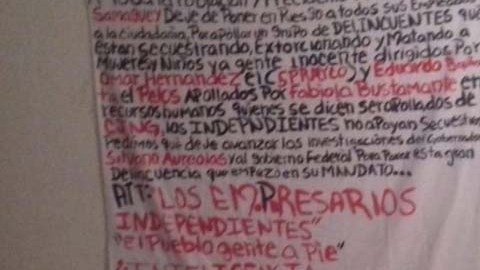 Samaguey Deve de Poner en Riesgo a todos sus Empleados
a la ciudadania, Por apollar un Grupo de DELINCUENTES que
estan secuestrando, Extorcionando y Matando a
Mujeres y Niños ya gente inocente dirigidos Por
Omar Hernandez el (SPArko) y Eduardo
el Pelos Apollados Por Fabiola Bustamante en
recursos humanos quienes se dicen ser apollados de
CJNG, los INDEPNDIENTES no aPoyan Secuestro
Pedimos que deve avanzar las investigaciones del Gobernador
Silvano Aureolas y al Gobierno Federal Para Parar esta gran
Delincuencia que emPezo en su MANDATO...
ATT: "LOS EMPRESARIOS
INDEPENDIENTES"
"el Pueblo gente a Pie"